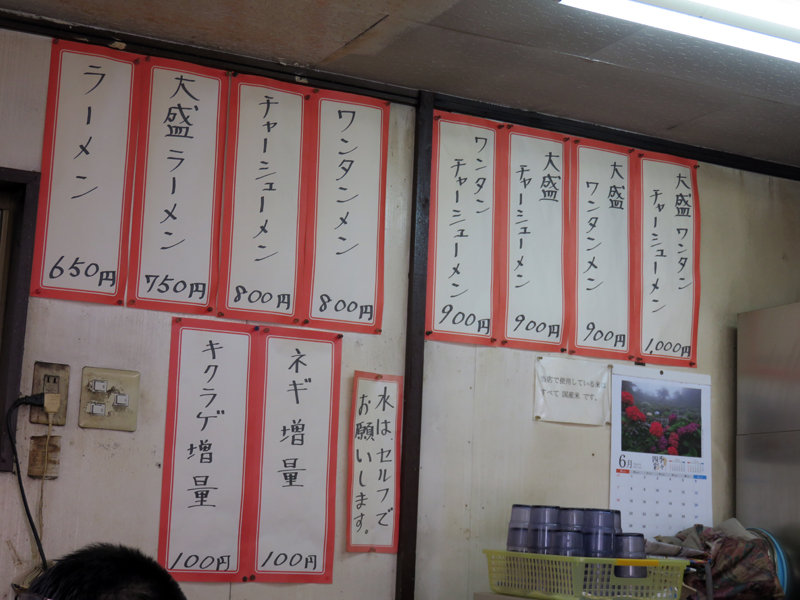 ラーメン
650円
大盛ラーメン
750円
チャーシューメン
800円
ワンタンメン
800円
ワンタン
チャーシューメン
900円
大盛
チャーシューメン
900円
大盛
ワンタンメン
900円
大盛ワンタン
チャーシューメン
1,000円
キクラゲ増量
100円
ネギ増量
100円
水は、セルフで
お願いします。
当店で使用している米は
すべて 国産米 です。
6月
四季
彩々